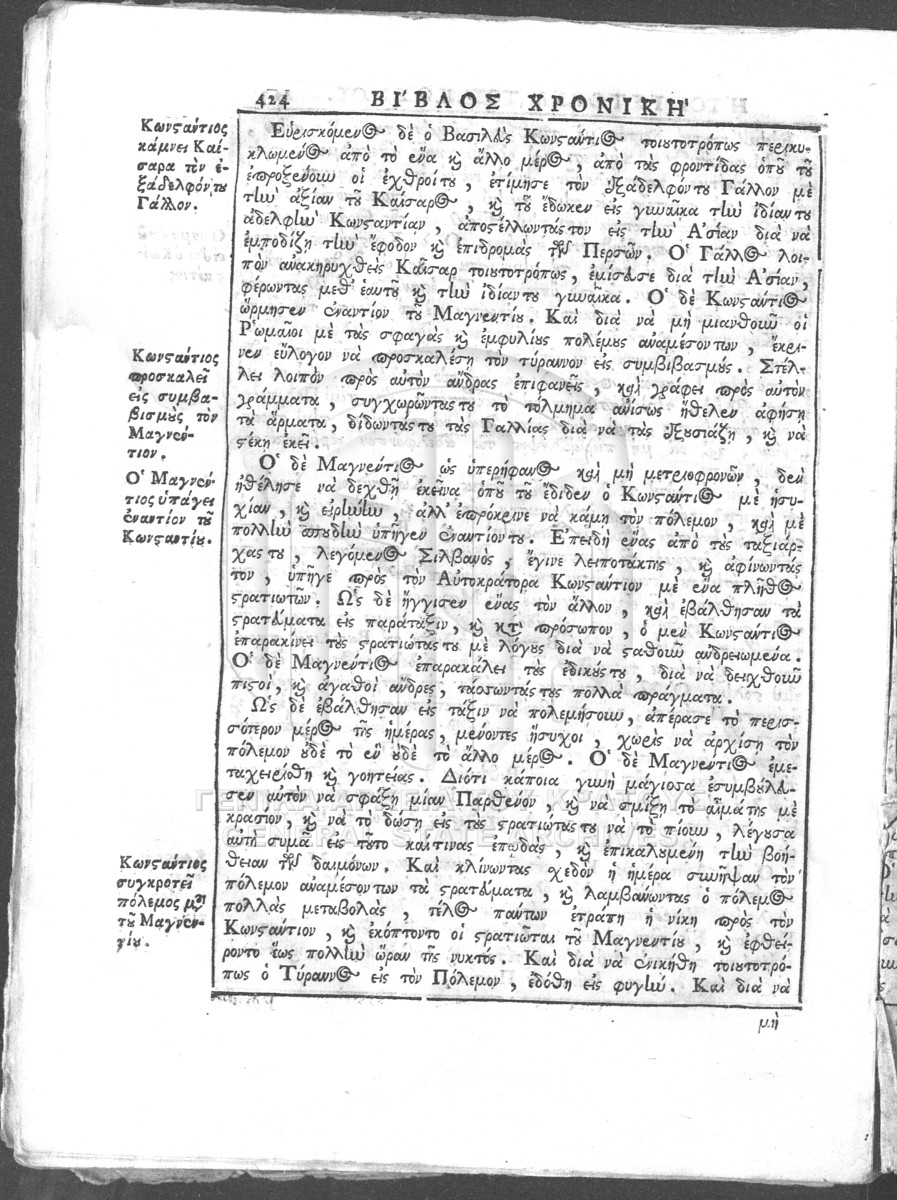 424 ΒΙ΄ΒΛΟΣ ΧΡΟΝΙΚΗ'
Κωνϛαύτιος
κάμνει Καί-
σαρα τὸν ἐ-
ξαδελφόν του
Γάλλον.
Εὑρισκόμενος δὲ ὁ Βασιλεὺς Κωνϛαύτιος τοιουτοτρόπως περικυ-
κλωμένος ἀπὸ τὸ ἕνα καὶ ἄλλο μέρος, ἀπὸ τὰς φροντίδας ὁποῦ τοῦ
ἐπροξενοῦσαν οἱ ἐχθροί του, ἐτίμησε τὸν ἐξαδελφόν του Γάλλον μὲ
τὴν ἀξίαν τοῦ Καίσαρος, καὶ τοῦ ἔδωκεν εἰς γυναῖκα τὴν ἰδίαν του
ἀδελφὴν Κωνϛαντίαν, ἀποϛέλλωντάς τον εἰς τὴν Α'σίαν διὰ νὰ
ἐμποδίζῃ τὴν ἔφοδον καὶ ἐπιδρομὰς τῶν Περσῶν. Ο῾ Γάλλος λοι-
πὸν ἀνακηρυχθεὶς Καῖσαρ τοιουτοτρόπως, ἐμίσευσε διὰ τὴν Α'σίαν,
φέρωντας μεθ' ἑαυτοῦ καὶ τὴν ἰδίαν του γυναῖκα. Ο῾ δὲ Κωνϛαύτιος
ὥρμησεν ἐναντίον τοῦ Μαγνεντίου. Καὶ διὰ νὰ μὴ μιανθοῦν οἱ
Ρ῾ωμαῖοι μὲ τὰς σφαγὰς καὶ ἐμφυλίους πολέμους ἀναμέσον των, ἔκρι-
νεν εὔλογον νὰ προσκαλέσῃ τὸν τύραννον εἰς συμβιβασμούς. Στέλ-
λει λοιπὸν πρὸς αὐτὸν ἄνδρας ἐπιφανεῖς, καὶ γράφει πρὸς αὐτὸν
γράμματα, συγχωρῶντας του τὸ τόλμημα ἀνίσως ἤθελεν ἀφήσῃ
τὰ ἅρματα, δίδωντάς του τὰς Γαλλίας διὰ νὰ τὰς ἐξουσιάζῃ, καὶ νὰ
ϛέκῃ ἐκεῖ.
Κωνϛαύτιος
προσκαλεῖ
εἰς συμβα-
βισμοὺς τὸν
Μαγνέν-
τιον.
Ο῾ Μαγνέν-
τιος ὑπάγει
ἐναντίον τοῦ
Κωνϛαντίου.
Ο῾ δὲ Μαγνέντιος ὡς ὑπερήφανος καὶ μὴ μετριοφρονῶν, δὲν
ἠθέλησε νὰ δεχθῇ ἐκεῖνα ὁποῦ τοῦ ἔδιδεν ὁ Κωνϛαύτιος μὲ ἡσυ-
χίαν, καὶ εἰρήνην, ἀλλ' ἐπρόκρινε νὰ κάμῃ τὸν πόλεμον, καὶ μὲ
πολλὴν σπουδὴν ὑπῆγεν ἐναντίον του. Ε'πειδὴ ἕνας ἀπὸ τοὺς ταξιάρ-
χας του, λεγόμενος Σιλβανὸς, ἔγινε λειποτάκτης, καὶ ἀφίνωντάς
τον, ὑπῆγε πρὸς τὸν Αὐτοκράτορα Κωνϛαύτιον μὲ ἕνα πλῆθος
ϛρατιωτῶν. Ω῾ς δὲ ἤγγισεν ἕνας τὸν ἄλλον, καὶ ἐβάλθησαν τὰ
ϛρατεύματα εἰς παράταξιν, καὶ κατὰ πρόσωπον, ὁ μὲν Κωνϛαύτιος
ἐπαρακίνει τοὺς ϛρατιώτας του μὲ λόγους διὰ νὰ ϛαθοῦν ἀνδρειωμένα.
Ο῾ δὲ Μαγνέντιος ἐπαρακάλει τοὺς ἐδικούς του, διὰ νὰ δειχθοῦν
πιϛοὶ, καὶ ἀγαθοὶ ἄνδρες, τάσσωντάς τους πολλὰ πράγματα.
Ω῾ς δὲ ἐβάλθησαν εἰς τάξιν νὰ πολεμήσουν, ἀπέρασε τὸ περισ-
σότερον μέρος τῆς ἡμέρας, μένοντες ἥσυχοι, χωρὶς νὰ ἀρχίσῃ τὸν
πόλεμον οὐδὲ τὸ ἓν οὐδὲ τὸ ἄλλο μέρος. Ο῾ δὲ Μαγνέντιος ἐμε-
ταχειρίσθη καὶ γοητείας. Διότι κάποια γυνὴ μάγισσα ἐσυμβούλευ-
σεν αὐτὸν νὰ σφάξῃ μίαν Παρθένον, καὶ νὰ σμίξῃ τὸ αἷμα της μὲ
κρασίον, καὶ νὰ τὸ δώσῃ εἰς τοὺς ϛρατιώτας του νὰ τὸ πίουν, λέγουσα
αὐτὴ σιμὰ εἰς τοῦτο καί τινας ἐπῳδὰς, καὶ ἐπικαλουμένη τὴν βοή-
θειαν τῶν δαιμόνων. Καὶ κλίνωντας σχεδὸν ἡ ἡμέρα συνῆψαν τὸν
πόλεμον ἀναμέσον των τὰ ϛρατεύματα, καὶ λαμβάνωντας ὁ πόλεμος
πολλὰς μεταβολὰς, τέλος πάντων ἐτράπη ἡ νίκη πρὸς τὸν
Κωνϛαύτιον, καὶ ἐκόπτοντο οἱ ϛρατιῶται τοῦ Μαγνεντίου, καὶ ἐφθεί-
ροντο ἕως πολλὴν ὥραν τῆς νυκτός. Καὶ διὰ νὰ ἐνικήθη τοιουτοτρό-
πως ὁ Τύραννος εἰς τὸν Πόλεμον, ἐδόθη εἰς φυγήν. Καὶ διὰ νὰ
Κωνϛαύτιος
συγκροτεῖ
πόλεμος μετὰ
τοῦ Μαγνεν-
τίου.
μὴ